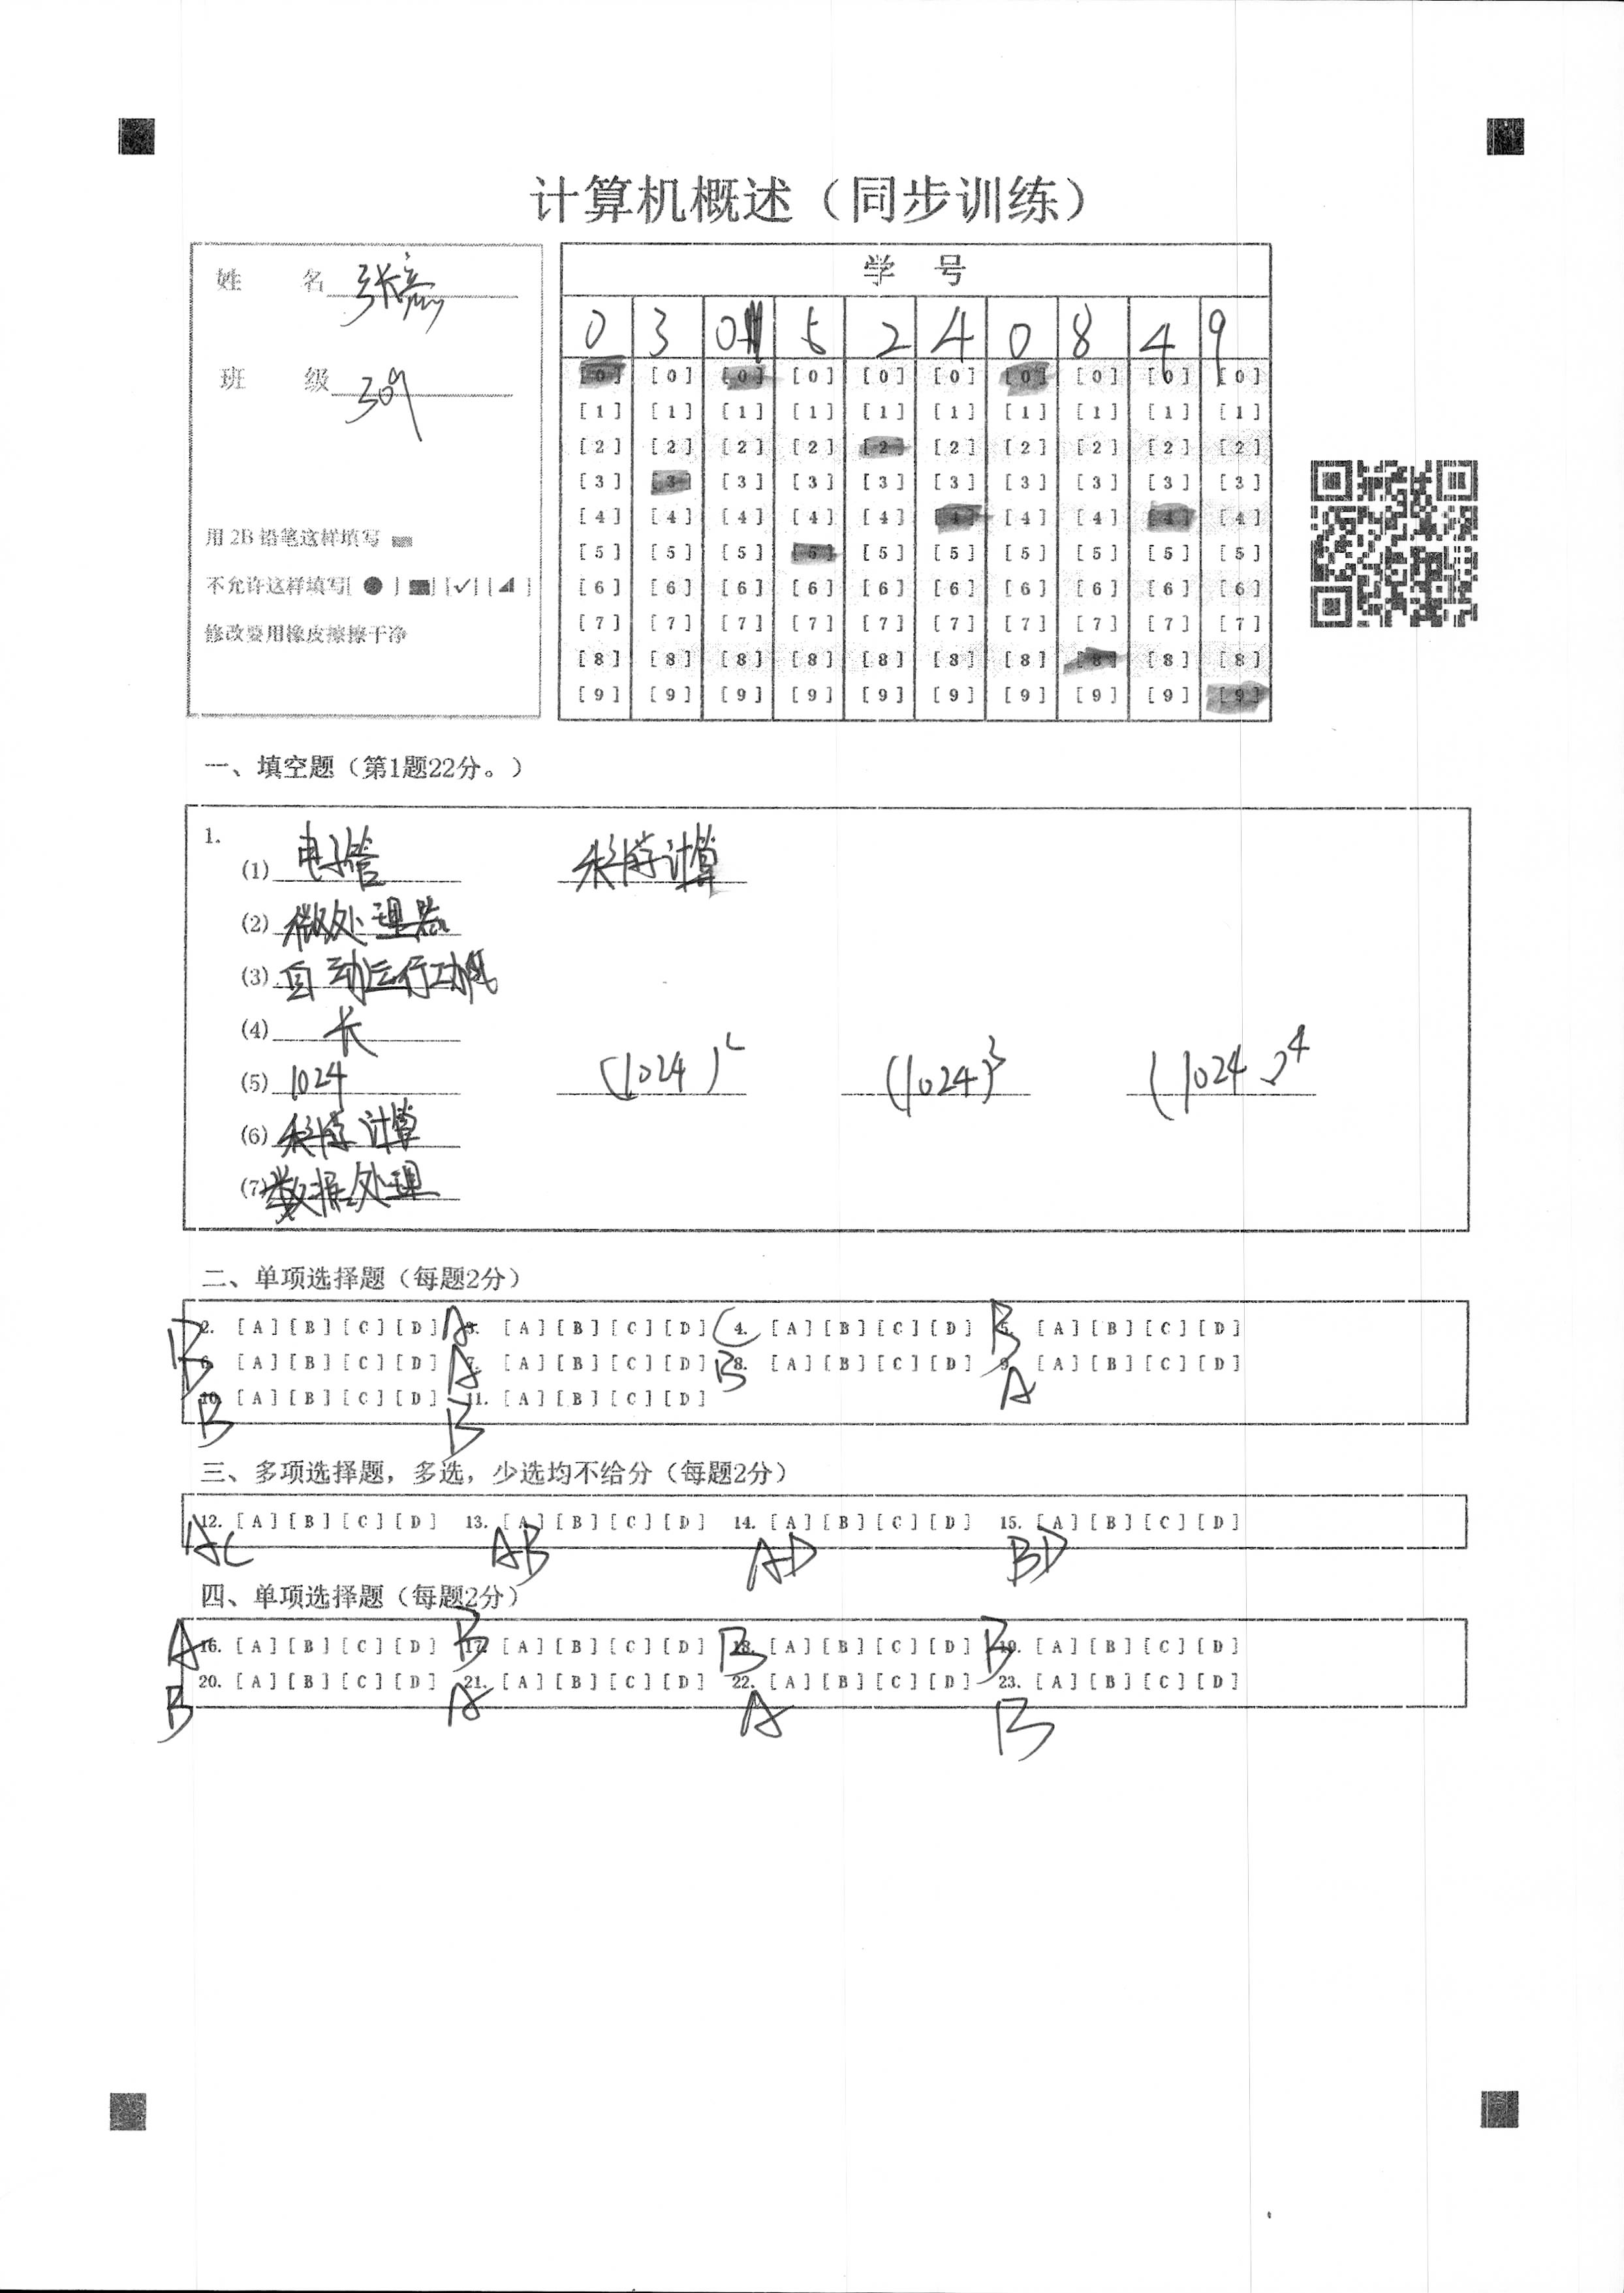 计算机概述（同步训练）
姓 名 张
班 级 309
用 2B 铅笔这样填写
不允许这样填写[ ● ] [■] [✓] [◢ ]
修改要用橡皮擦擦干净
学 号
0 3 0 5 2 4 0 8 4 9
[0] [0] [0] [0] [0] [0] [0] [0] [0] [0]
[1] [1] [1] [1] [1] [1] [1] [1] [1] [1]
[2] [2] [2] [2] [2] [2] [2] [2] [2] [2]
[3] [3] [3] [3] [3] [3] [3] [3] [3] [3]
[4] [4] [4] [4] [4] [4] [4] [4] [4] [4]
[5] [5] [5] [5] [5] [5] [5] [5] [5] [5]
[6] [6] [6] [6] [6] [6] [6] [6] [6] [6]
[7] [7] [7] [7] [7] [7] [7] [7] [7] [7]
[8] [8] [8] [8] [8] [8] [8] [8] [8] [8]
[9] [9] [9] [9] [9] [9] [9] [9] [9] [9]
一、填空题（第1题22分。）
1.
(1) 电子管 科学计算
(2) 微处理器
(3) 自动运行功能
(4) 长
(5) 1024 (1024)² (1024)³ (1024)⁴
(6) 科学计算
(7) 数据处理
二、单项选择题（每题2分）
B 2. [A] [B] [C] [D] A 3. [A] [B] [C] [D] C 4. [A] [B] [C] [D] B 5. [A] [B] [C] [D]
B 6. [A] [B] [C] [D] A 7. [A] [B] [C] [D] B 8. [A] [B] [C] [D] A 9. [A] [B] [C] [D]
B 10. [A] [B] [C] [D] B 11. [A] [B] [C] [D]
三、多项选择题，多选，少选均不给分（每题2分）
12. [A] [B] [C] [D] 13. [A] [B] [C] [D] 14. [A] [B] [C] [D] 15. [A] [B] [C] [D]
AC AB AD BD
四、单项选择题（每题2分）
A 16. [A] [B] [C] [D] B 17. [A] [B] [C] [D] B 18. [A] [B] [C] [D] B 19. [A] [B] [C] [D]
20. [A] [B] [C] [D] 21. [A] [B] [C] [D] 22. [A] [B] [C] [D] 23. [A] [B] [C] [D]
B A A B